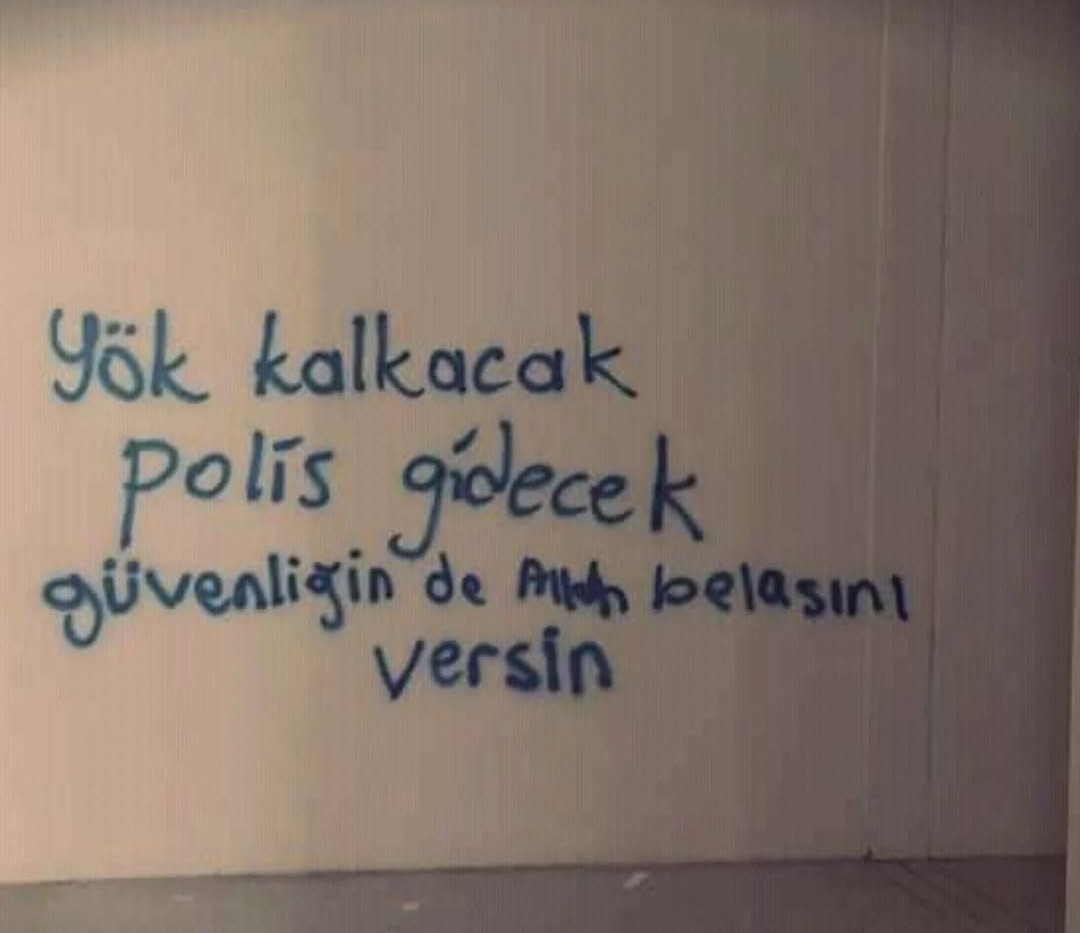 Yök kalkacak
polis gidecek
güvenliğin de Allah belasını
versin